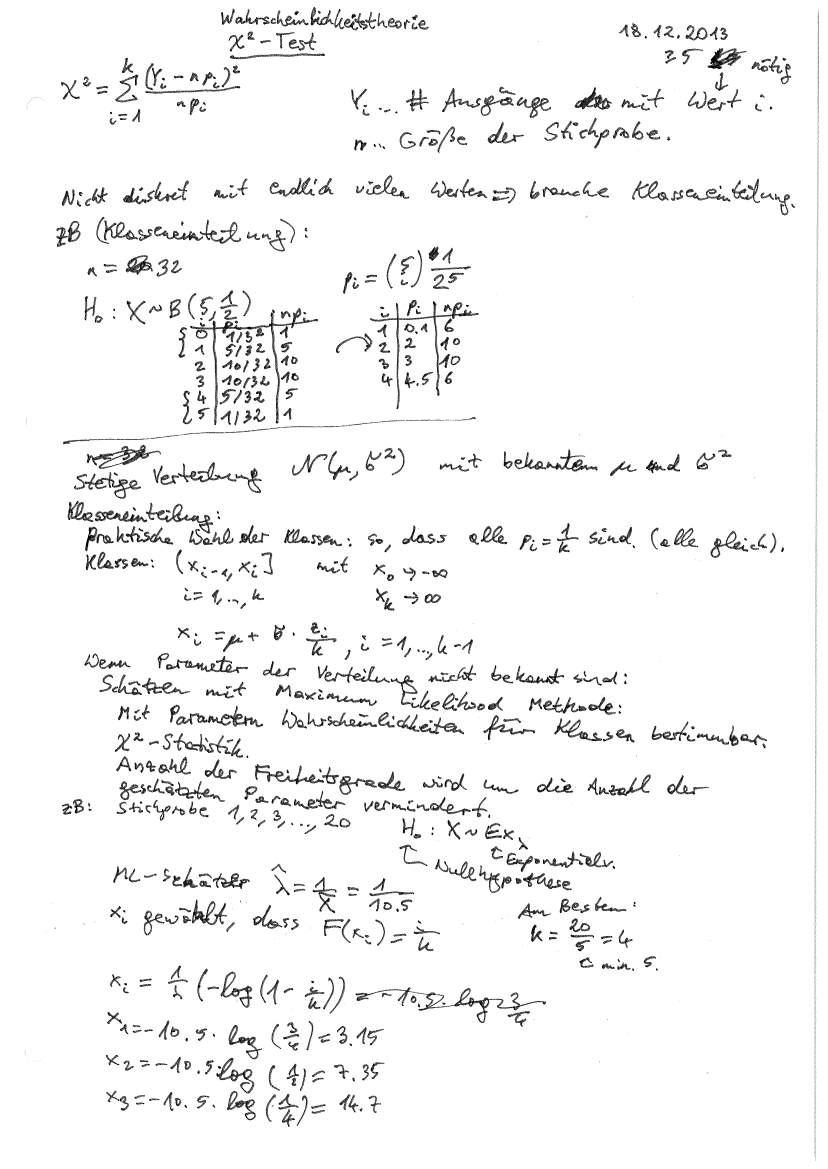 Wahrscheinlichkeitstheorie
χ²-Test
18.12.2013
35 nötig
χ² = Σ_{i=1}^{k} (Y_i - n p_i)² / (n p_i)
Y_i ... # Ausgänge mit Wert i.
n ... Größe der Stichprobe.
Nicht diskret mit endlich vielen Werten => brauche Klasseneinteilung.
zB (Klasseneinteilung):
n = 32
p_i = (5 über i) 1/2^5
H_0 : X ~ B(5, 1/2)
i | p_i | np_i
0 | 1/32 | 1
1 | 5/32 | 5
2 | 10/32 | 10
3 | 10/32 | 10
4 | 5/32 | 5
5 | 1/32 | 1
i | p_i | np_i
1 | 0.1 | 6
2 | 2 | 10
3 | 3 | 10
4 | 4.5 | 6
Stetige Verteilung N(μ, σ²) mit bekanntem μ und σ²
Klasseneinteilung:
Praktische Wahl der Klassen: so, dass alle p_i = 1/k sind. (alle gleich).
Klassen: (x_{i-1}, x_i] mit x_0 → -∞
i = 1, .., k x_k → ∞
x_i = μ + σ · z_{i/k}, i = 1, .., k-1
Wenn Parameter der Verteilung nicht bekannt sind:
Schätzen mit Maximum Likelihood Methode:
Mit Parametern Wahrscheinlichkeiten für Klassen bestimmbar.
χ²-Statistik.
Anzahl der Freiheitsgrade wird um die Anzahl der
geschätzten Parameter vermindert.
zB: Stichprobe 1, 2, 3, ..., 20
H_0 : X ~ Ex_λ
Exponentialv.
Nullhypothese
ML-Schätzer λ̂ = 1/X̄ = 1/10.5
x_i gewählt, dass F(x_i) = i/k
Am Besten:
k = 20/5 = 4
min. 5.
x_i = 1/λ (-log(1 - i/k)) = -10.5 · log 3/4
x_1 = -10.5 · log (3/4) = 3.15
x_2 = -10.5 · log (1/2) = 7.35
x_3 = -10.5 · log (1/4) = 14.7